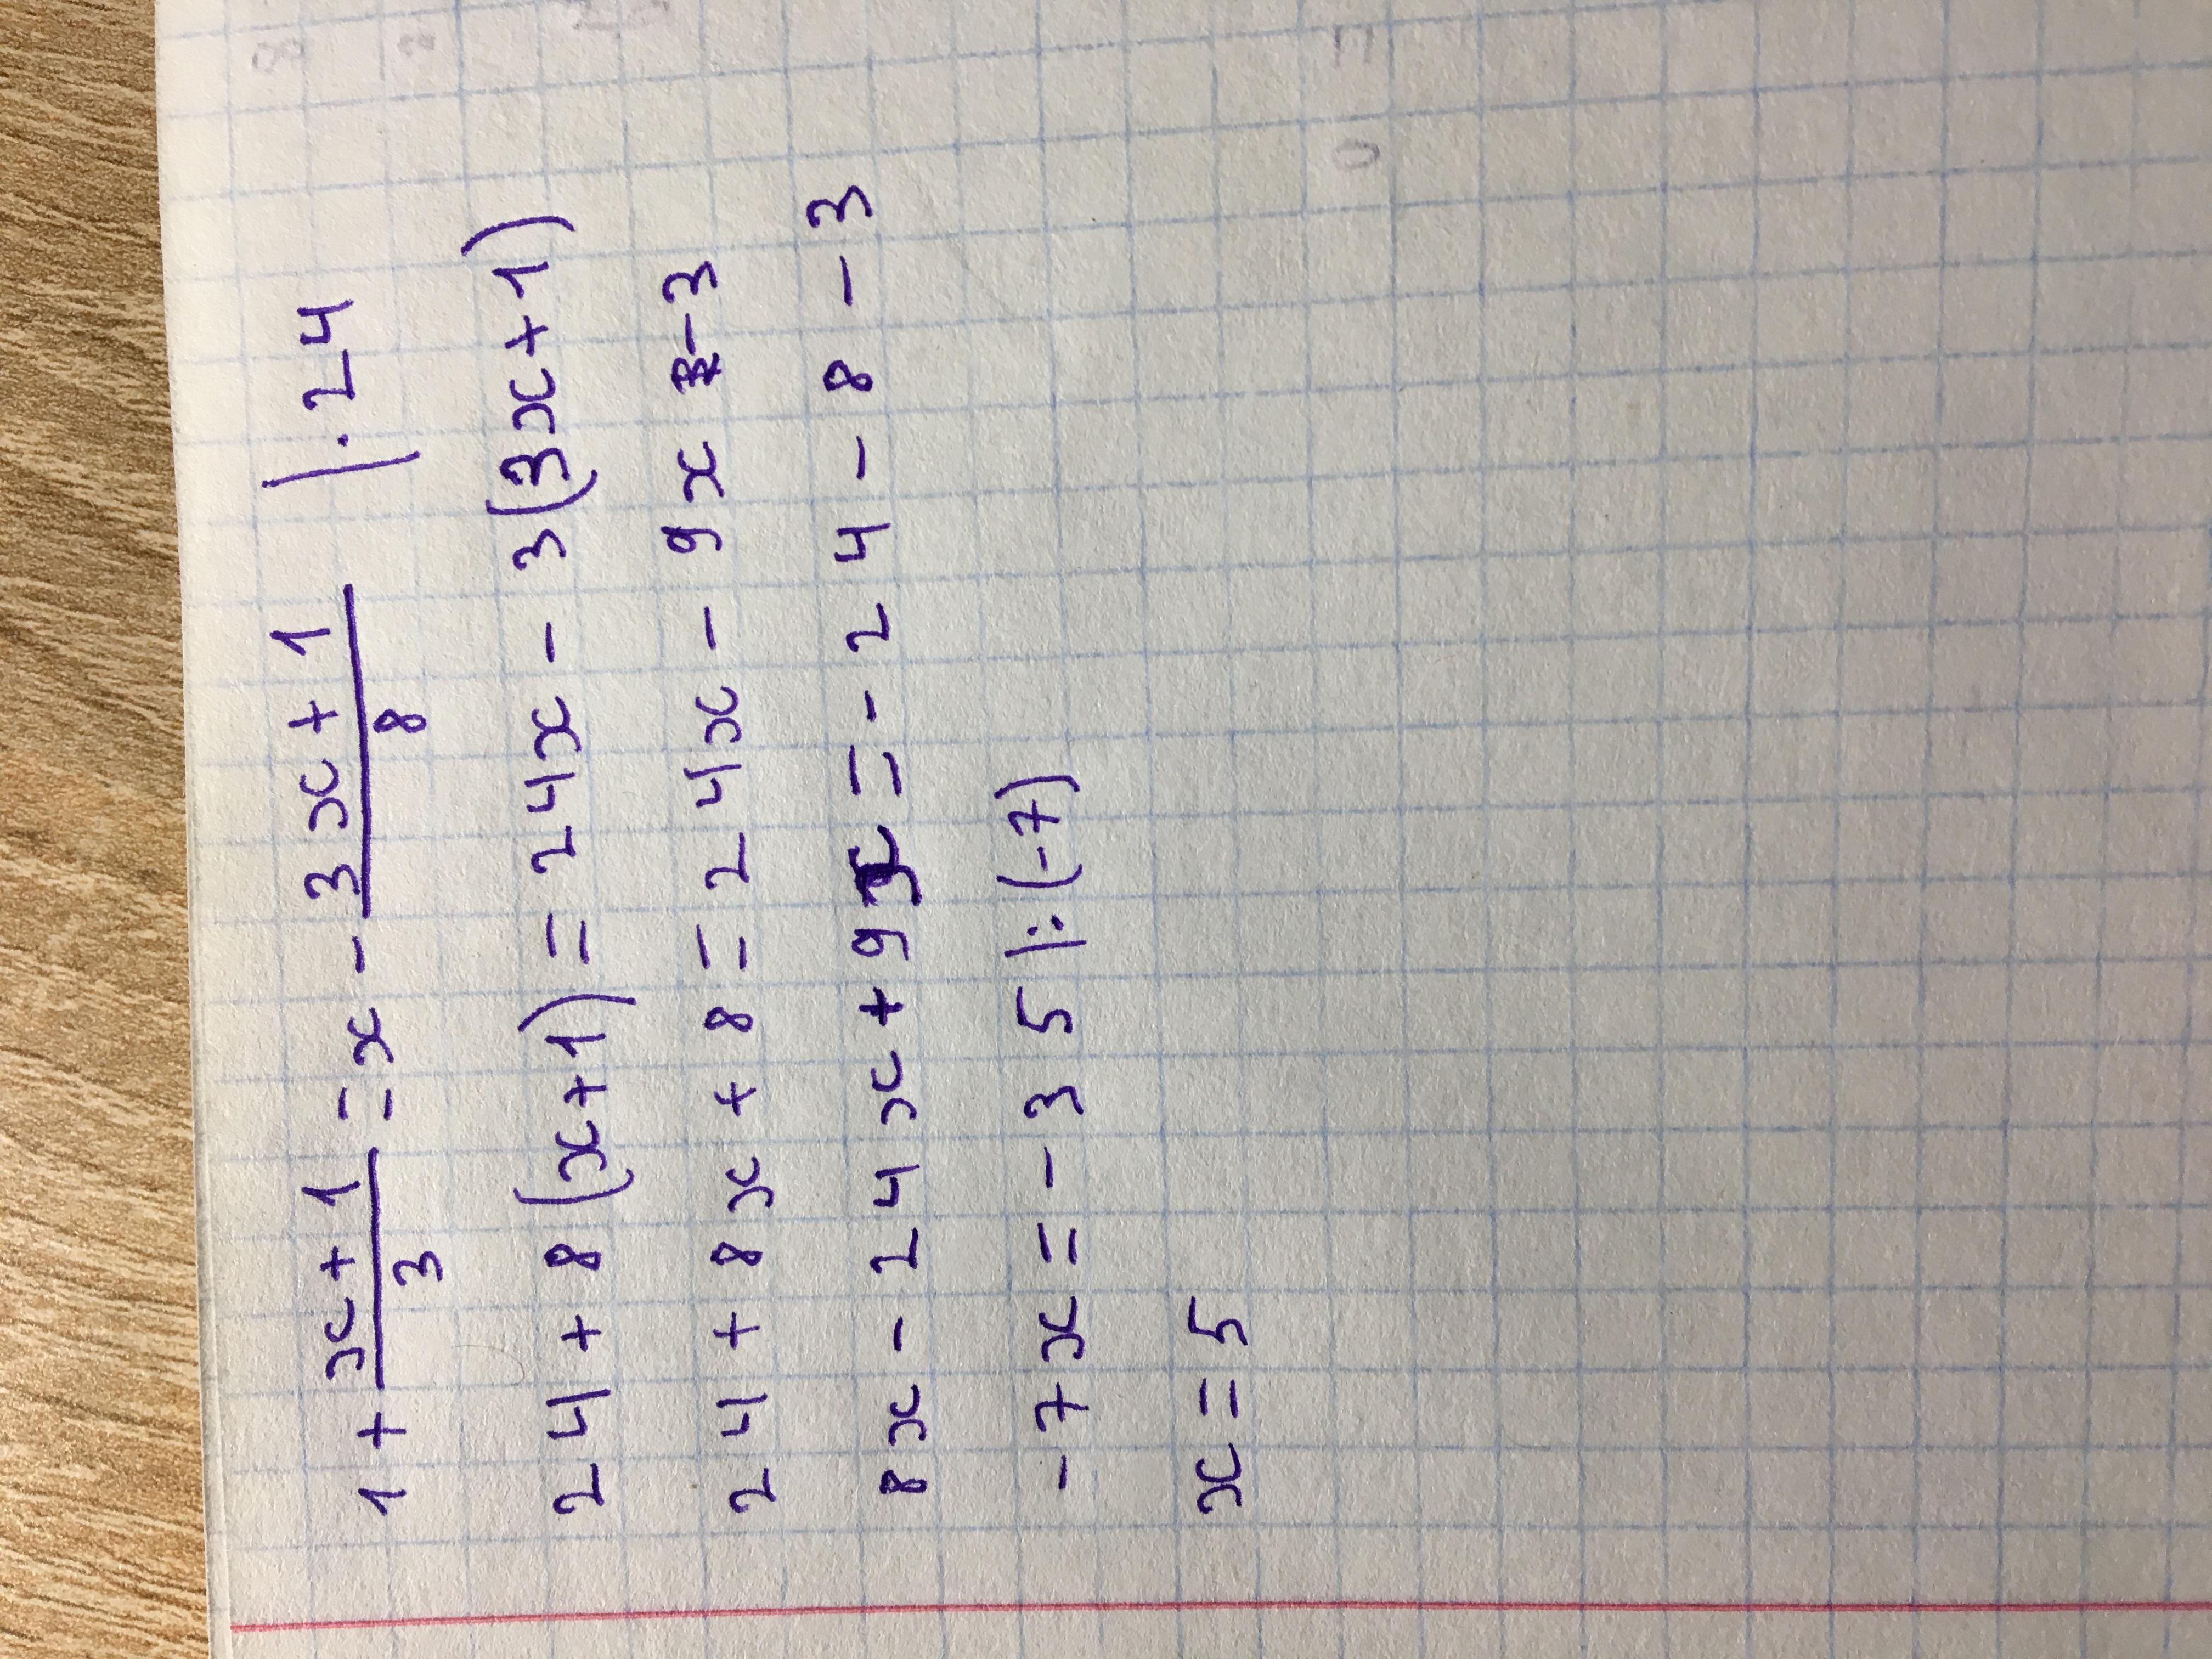 1 + \frac{x+1}{3} = x - \frac{3x+1}{8} | · 24
24 + 8(x+1) = 24x - 3(3x+1)
24 + 8x + 8 = 24x - 9x - 3
8x - 24x + 9x = -24 - 8 - 3
-7x = -35 |:(-7)
x = 5